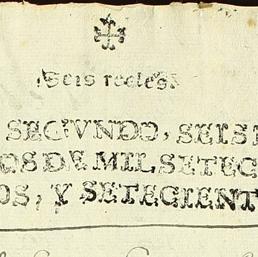 Seis reales.
SEGVNDO, SEIS
OS DE MIL SETEC
OS, Y SETECIENT